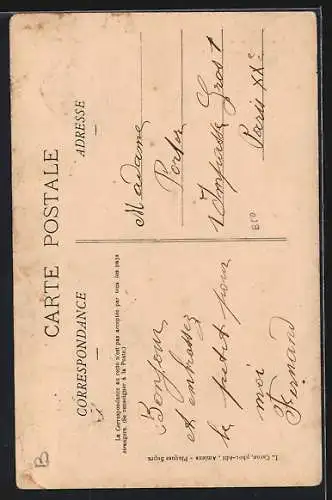 CARTE POSTALE
CORRESPONDANCE
La Correspondance au recto n'est pas acceptée par tous les pays
étrangers. (Se renseigner à la Poste.)
Bonjour
et embrassez
le petit pour
moi
Fernand
ADRESSE
Madame
Porter
1 Impasse Grost
Paris XXe
L. Caron, phot.-édit., Amiens - Plaques Supra
B